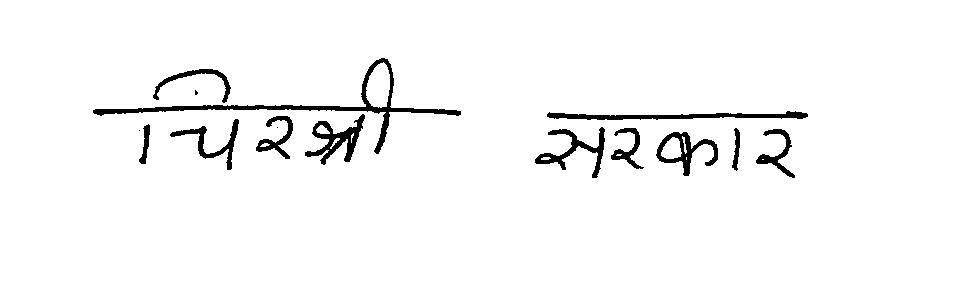 चिंरश्री सरकार